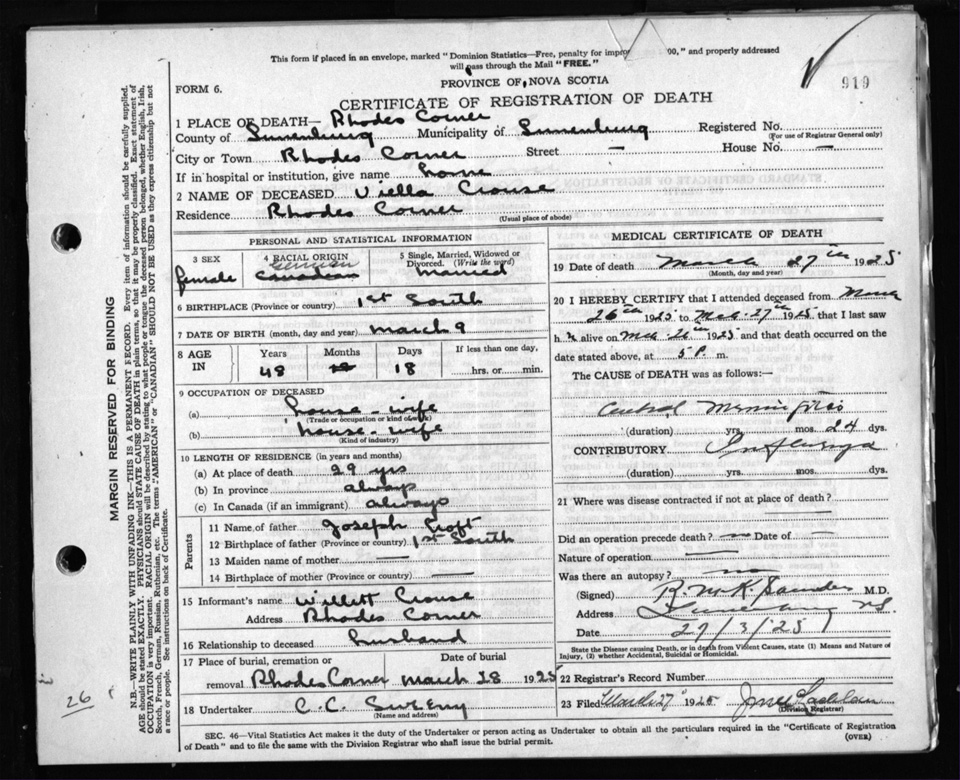 This form if placed in an envelope, marked "Dominion Statistics—Free, penalty for impro 00," and properly addressed
will pass through the Mail "FREE."
919
PROVINCE OF NOVA SCOTIA
FORM 6.
CERTIFICATE OF REGISTRATION OF DEATH
1 PLACE OF DEATH— Rhodes Corner
County of Lunenburg Municipality of Lunenburg Registered No.
(For use of Registrar General only)
City or Town Rhodes Corner Street — House No. —
If in hospital or institution, give name home
2 NAME OF DECEASED Viella Crouse
Residence Rhodes Corner
(Usual place of abode)
PERSONAL AND STATISTICAL INFORMATION
3 SEX 4 RACIAL ORIGIN 5 Single, Married, Widowed or Divorced. (Write the word)
female German Canadian married
6 BIRTHPLACE (Province or country) 1st South
7 DATE OF BIRTH (month, day and year) March 9
8 AGE IN Years Months Days If less than one day,
48 18 hrs. or min.
9 OCCUPATION OF DECEASED
(a) house-wife
(Trade or occupation or kind of work)
(b) house-wife
(Kind of industry)
10 LENGTH OF RESIDENCE (in years and months)
(a) At place of death 29 yrs
(b) In province always
(c) In Canada (if an immigrant) always
Parents
11 Name of father Joseph Croft
12 Birthplace of father (Province or country) 1st South
13 Maiden name of mother
14 Birthplace of mother (Province or country) —
15 Informant's name Willett Crouse
Address Rhodes Corner
16 Relationship to deceased husband
17 Place of burial, cremation or Date of burial
removal Rhodes Corner March 28 1925
18 Undertaker C. C. Sweeny
(Name and address)
MEDICAL CERTIFICATE OF DEATH
19 Date of death March 27th 1925
(Month, day and year)
20 I HEREBY CERTIFY that I attended deceased from March
26th 1925 to Mch. 27th 1925, that I last saw
h alive on Mch 26th 1925 and that death occurred on the
date stated above, at 5 P. m.
The CAUSE of DEATH was as follows:—
Meningitis
(duration) yrs. mos. 24 dys.
CONTRIBUTORY Influenza
(duration) yrs. mos. dys.
21 Where was disease contracted if not at place of death?
Did an operation precede death? no Date of —
Nature of operation —
Was there an autopsy? no
(Signed) R. McK. Saunders M.D.
Address Lunenburg N.S.
Date 27/3/25
State the Disease causing Death, or in death from Violent Causes, state (1) Means and Nature of
Injury, (2) whether Accidental, Suicidal or Homicidal.
22 Registrar's Record Number
23 Filed March 27" 1925
(Division Registrar)
SEC. 46—Vital Statistics Act makes it the duty of the Undertaker or person acting as Undertaker to obtain all the particulars required in the "Certificate of Registration
of Death" and to file the same with the Division Registrar who shall issue the burial permit. (OVER)
MARGIN RESERVED FOR BINDING
N.B.—WRITE PLAINLY WITH UNFADING INK—THIS IS A PERMANENT RECORD. Every item of information should be carefully supplied.
AGE should be stated EXACTLY. PHYSICIANS should STATE CAUSE OF DEATH in plain terms, so that it may be properly classified. Exact statement of
OCCUPATION is very important. RACIAL ORIGIN will be described by stating to what people or tongue the deceased person belonged, whether English, Irish,
Scotch, French, German, Russian, Ruthenian, etc. The terms "AMERICAN" or "CANADIAN" SHOULD NOT BE USED as they express citizenship but not
a race or people. See instructions on back of Certificate.
26